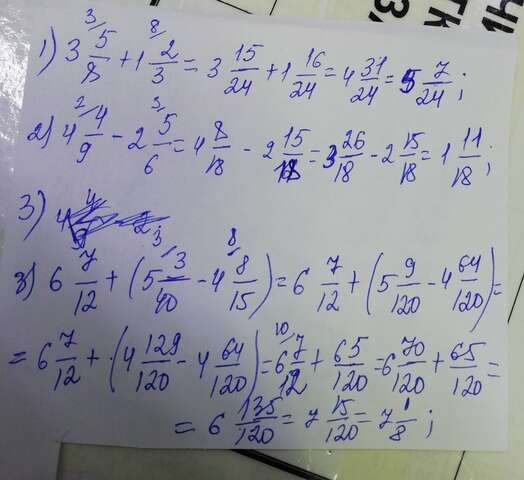 1) 3 5/8 + 1 2/3 = 3 15/24 + 1 16/24 = 4 31/24 = 5 7/24;
2) 4 4/9 - 2 5/6 = 4 8/18 - 2 15/18 = 3 26/18 - 2 15/18 = 1 11/18;
3)
3) 6 7/12 + (5 3/40 - 4 8/15) = 6 7/12 + (5 9/120 - 4 64/120) =
= 6 7/12 + (4 129/120 - 4 64/120) = 6 7/12 + 65/120 = 6 70/120 + 65/120 =
= 6 135/120 = 7 15/120 = 7 1/8;